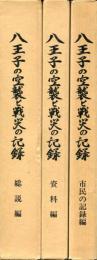 八王子の空襲と戦災の記録
総説編
八王子の空襲と戦災の記録
資料編
八王子の空襲と戦災の記録
市民の記録編